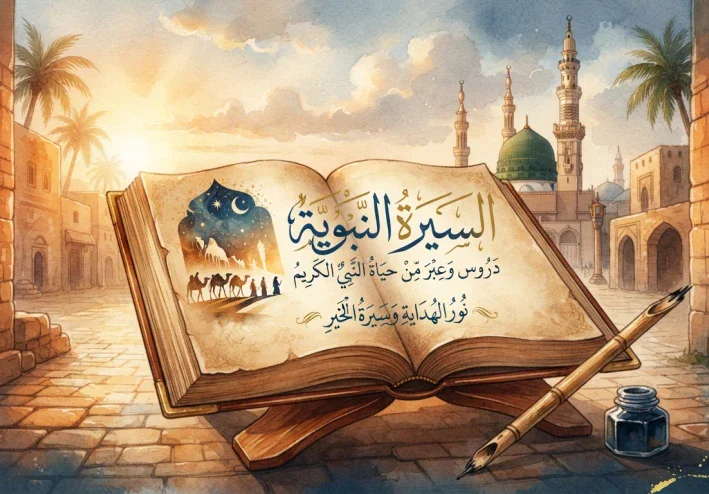 السِّيرَةُ النَّبَوِيَّة
دَرُوس وَعِبَر مِّنْ حَيَاةُ النَّبِيُّ الكَرِيمُ
نُورُ الهُدَايَةِ وَسَيَرَةُ الْخَيْرِ